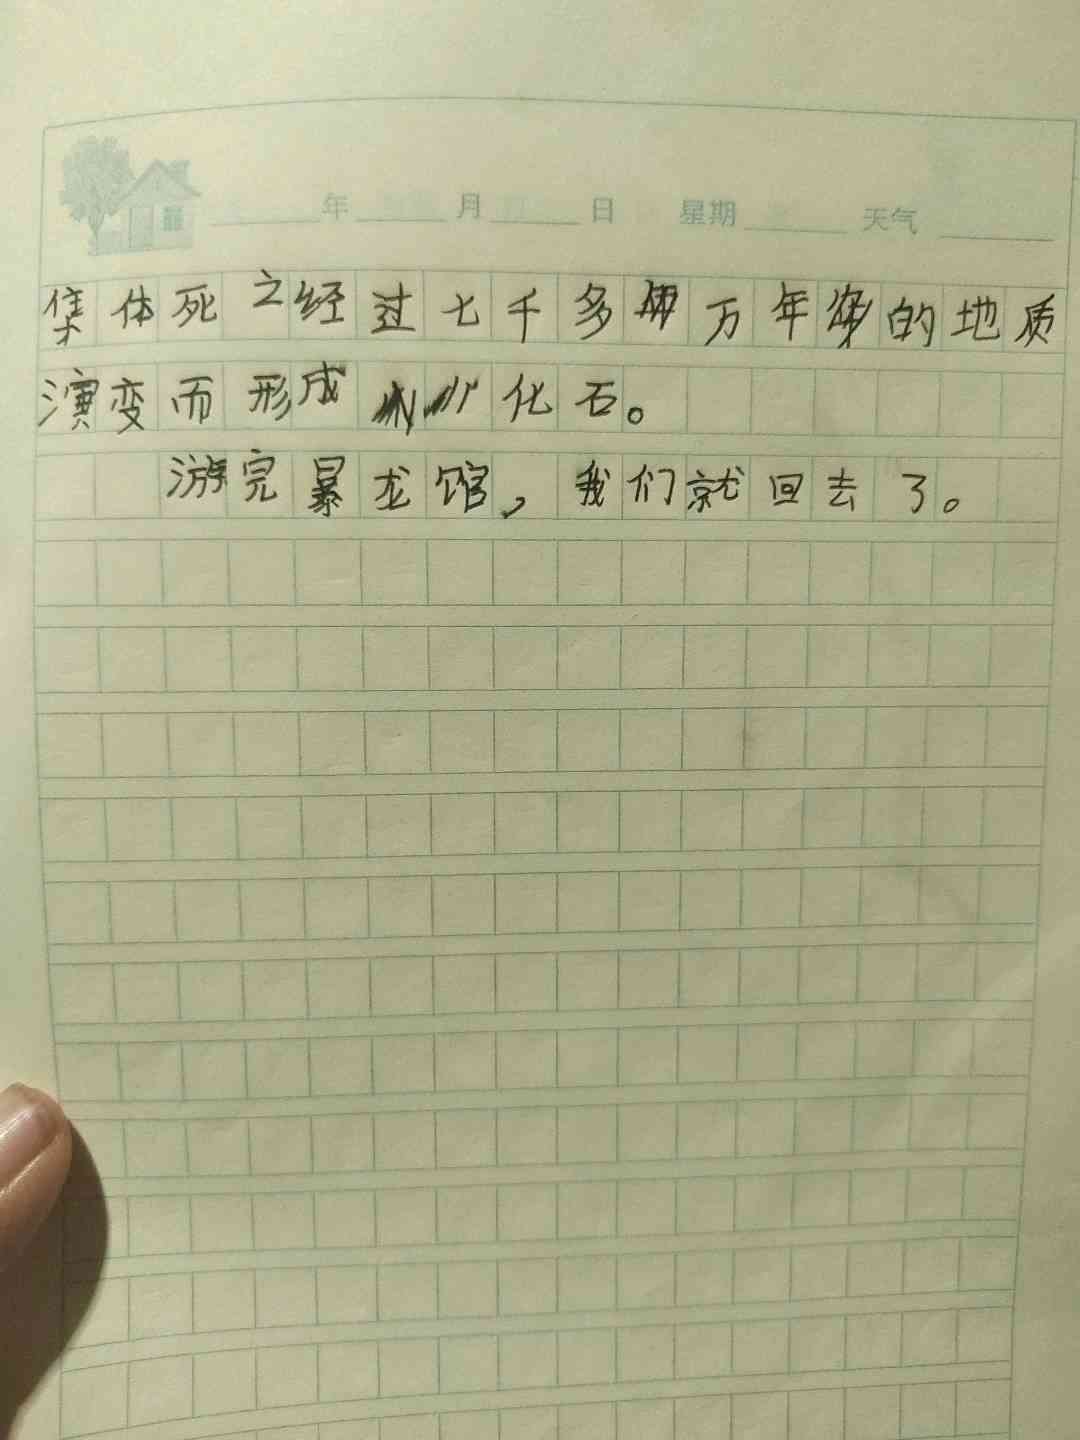 年 月 日 星期 天气
集体死之经过七千多万年的地质
演变而形成化石。
游完暴龙馆，我们就回去了。